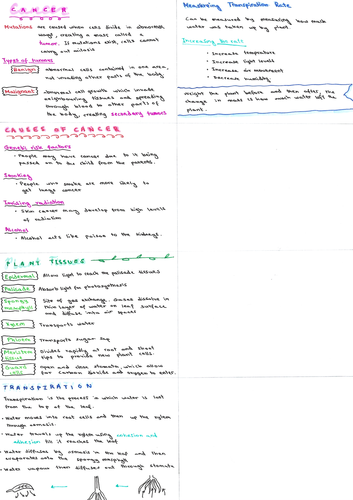 CANCER
Mutations are caused when cells divide in abnormal
ways, creating a mass called a
tumor. If mutations exist, cells cannot
carry out mitosis
Types of tumors
Benign abnormal cells contained in one area,
not invading other parts of the body.
Malignant abnormal cell growth which invade
neighbouring tissues and spreading
through blood to other parts of
the body, creating secondary tumors
CAUSES OF CANCER
Genetic risk factors
• People may have cancer due to it being
passed on to the child from the parents.
Smoking
• People who smoke are more likely to
get lungs cancer
Ionising radiation
• Skin cancer may develop from high levels
of radiation
Alcohol
• Alcohol acts like poison to the kidneys.
PLANT TISSUES
Epidermal Allow light to reach the palisade tissues
Palisade Absorb light for photosynthesis
Spongy mesophyll Site of gas exchange. Gases dissolve in
thin layer of water on leaf surface
and diffuse into air spaces
Xylem Transports water
Phloem Transports sugar sap
Meristem tissue Divides rapidly at root and shoot
tips to provide new plant cells.
Guard cells Open and close stomata, which allow
for carbon dioxide and oxygen to enter.
TRANSPIRATION
Transpiration is the process in which water is lost
from the top of the leaf.
• Water moves into root cells and then up the xylem
through osmosis.
• Water travels up the xylem using cohesion and
adhesion till it reaches the leaf
• Water diffuses by osmosis in the leaf and then
evaporates into the spongy mesophyll
• Water vapour then diffuses out through stomata
Measuring Transpiration Rate
Can be measured by measuring how much
water was taken up by plant
Increasing the rate
• Increase temperature
• Increase light levels
• Increase air movement
• Decrease humidity
Weight the plant before and then after, the
change in mass is how much water left the
plant.